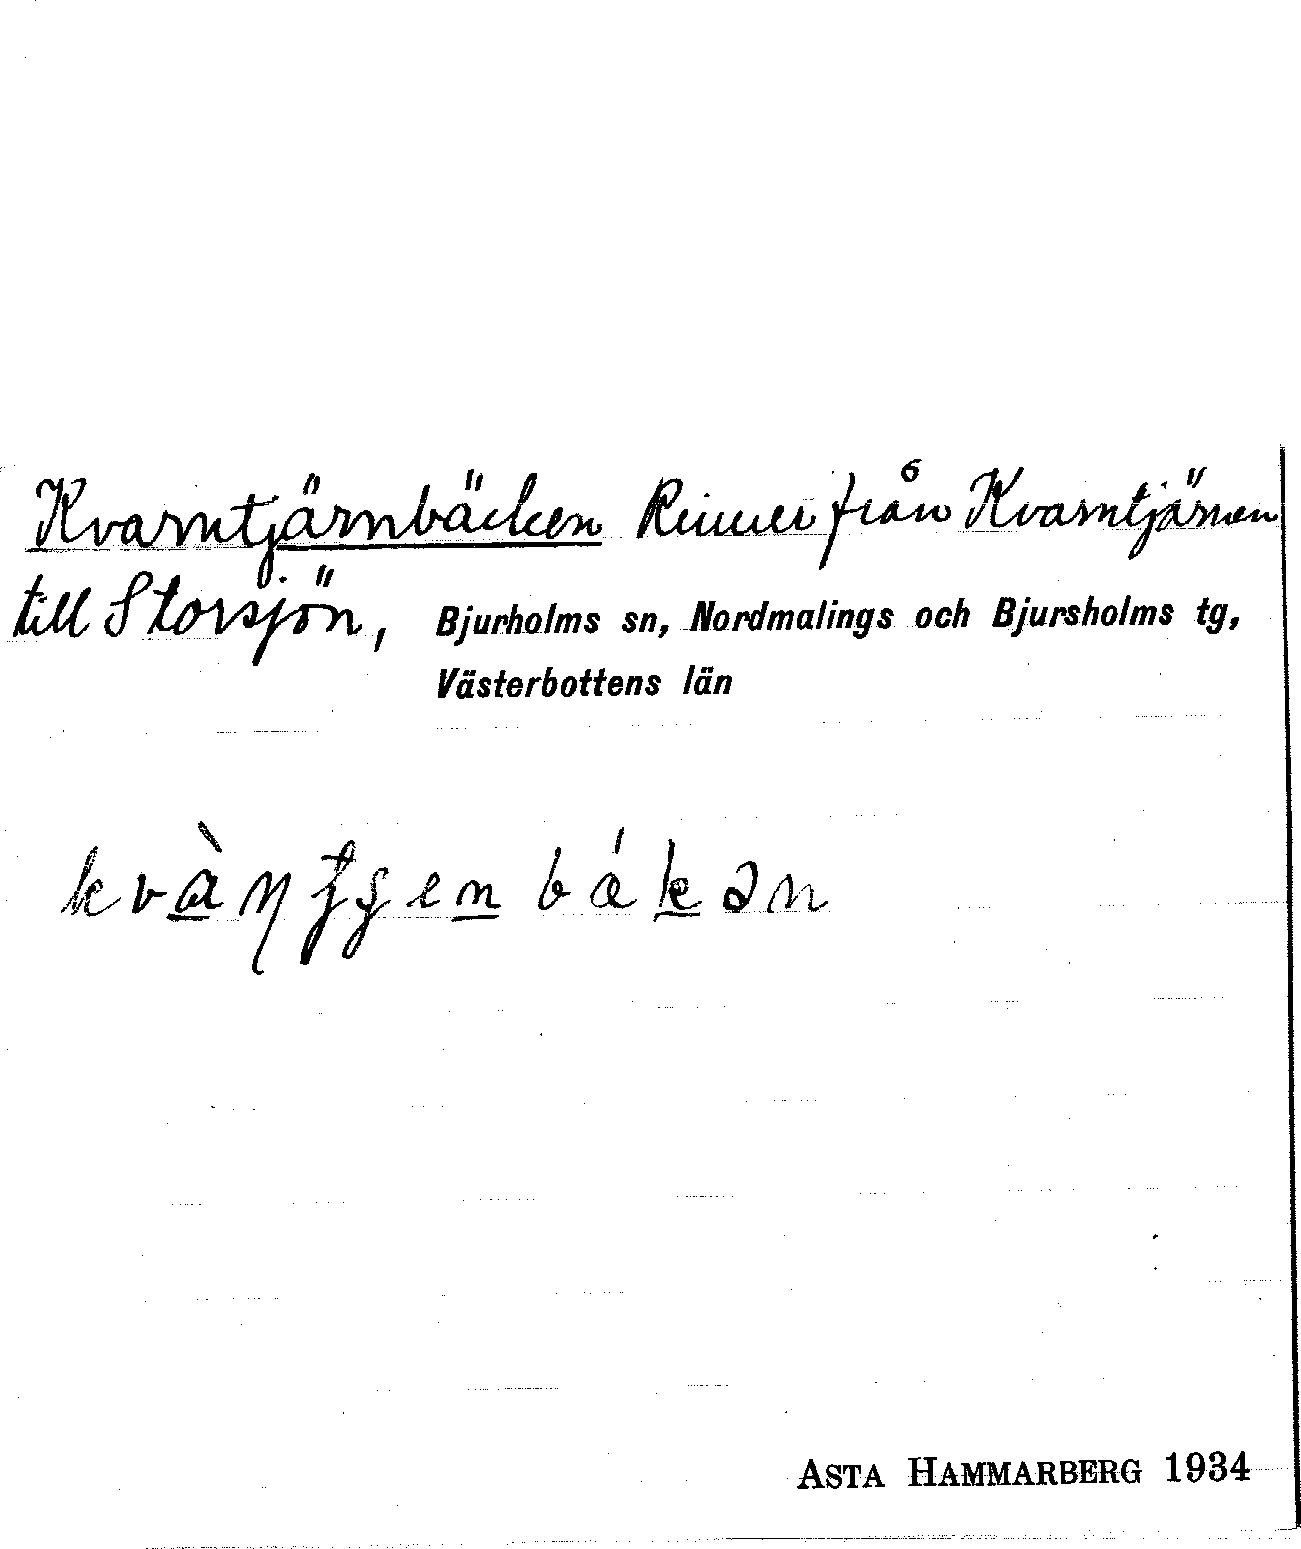 Kvarntjärnbäcken Rinner från Kvarntjärnen
till Storsjön, Bjurholms sn, Nordmalings och Bjursholms tg,
Västerbottens län
ASTA HAMMARBERG 1934